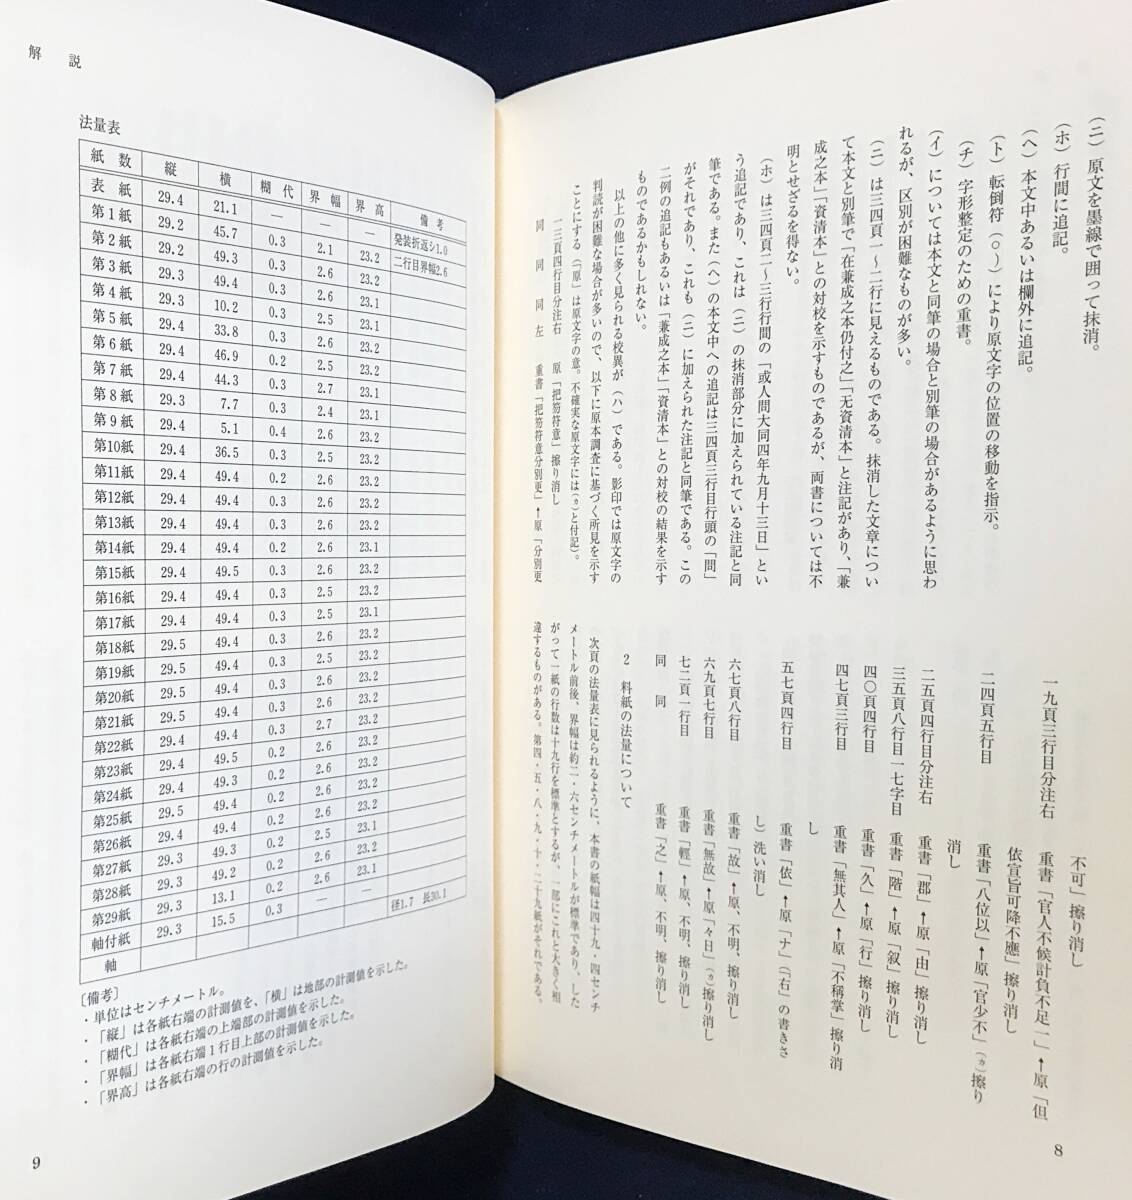 (ニ) 原文を墨線で囲って抹消。
(ホ) 行間に追記。
(ヘ) 本文中あるいは欄外に追記。
(ト) 転倒符(○〵)により原文字の位置の移動を指示。
(チ) 字形整定のための重書。
(イ)については本文と同筆の場合と別筆の場合があるように思わ
れるが、区別が困難なものが多い。
(ニ)は三四頁一〜二行に見えるものである。抹消した文章につい
て本文と別筆で「在兼成之本仍付之」「无資清本」と注記があり、「兼
成之本」「資清本」との対校を示すものであるが、両書については不
明とせざるを得ない。
(ホ)は三四頁二〜三行行間の「或人問大同四年九月十三日」とい
う追記であり、これは(ニ)の抹消部分に加えられている注記と同
筆である。また(ヘ)の本文中への追記は三四頁三行目行頭の「問」
がそれであり、これも(ニ)に加えられた注記と同筆である。この
二例の追記もあるいは「兼成之本」「資清本」との対校の結果を示す
ものであるかもしれない。
以上の他に多く見られる校異が(ハ)である。影印では原文字の
判読が困難な場合が多いので、以下に原本調査に基づく所見を示す
ことにする(「原」は原文字の意。不確実な原文字には(ヵ)と付記)。
一三頁四行目分注右 原「把笏符意」擦り消し
同 同 同 左 重書「把笏符意分別更」↑原「分別更
不可」擦り消し
一九頁三行目分注右 重書「官人不候計負不足一」↑原「但
依宣旨可降不應」擦り消し
二四頁五行目 重書「八位以」↑原「官少不」(ヵ)擦り
消し
二五頁四行目分注右 重書「郡」↑原「由」擦り消し
三五頁八行目一七字目 重書「階」↑原「叙」擦り消し
四〇頁四行目 重書「久」↑原「行」擦り消し
四七頁三行目 重書「無其人」↑原「不稱掌」擦り消
し
五七頁四行目 重書「依」↑原「ナ」(「右」の書きさ
し)洗い消し
六七頁八行目 重書「故」↑原、不明、擦り消し
六九頁七行目 重書「無故」↑原「々日」(ヵ)擦り消し
七二頁一行目 重書「輕」↑原、不明、擦り消し
同 同 重書「之」↑原、不明、擦り消し
2 料紙の法量について
次頁の法量表に見られるように、本書の紙幅は四十九・四センチ
メートル前後、界幅は約二・六センチメートルが標準であり、した
がって一紙の行数は十九行を標準とするが、一部にこれと大きく相
違するものがある。第四・五・八・九・十・二十九紙がそれである。
8
解 説
法量表
紙 数 縦 横 糊 代 界 幅 界 高 備 考
表 紙 29.4 21.1 — — — 発装折返シ1.0
第1紙 29.2 45.7 0.3 2.1 23.2 二行目界幅2.6
第2紙 29.2 49.3 0.3 2.6 23.2
第3紙 29.3 49.4 0.3 2.6 23.1
第4紙 29.3 10.2 0.3 2.5 23.1
第5紙 29.4 33.8 0.3 2.6 23.2
第6紙 29.4 46.9 0.2 2.6 23.2
第7紙 29.4 44.3 0.3 2.7 23.1
第8紙 29.3 7.7 0.3 2.4 23.1
第9紙 29.4 5.1 0.4 2.6 23.2
第10紙 29.4 36.5 0.3 2.5 23.2
第11紙 29.4 49.4 0.3 2.6 23.2
第12紙 29.4 49.4 0.3 2.6 23.2
第13紙 29.4 49.4 0.3 2.6 23.2
第14紙 29.4 49.4 0.2 2.6 23.1
第15紙 29.4 49.5 0.3 2.6 23.2
第16紙 29.4 49.4 0.3 2.5 23.2
第17紙 29.4 49.4 0.3 2.5 23.1
第18紙 29.5 49.4 0.3 2.6 23.2
第19紙 29.4 49.4 0.3 2.5 23.2
第20紙 29.5 49.4 0.3 2.6 23.2
第21紙 29.5 49.4 0.3 2.6 23.2
第22紙 29.4 49.4 0.3 2.7 23.2
第23紙 29.4 49.5 0.2 2.6 23.2
第24紙 29.4 49.3 0.2 2.6 23.2
第25紙 29.5 49.4 0.2 2.6 23.2
第26紙 29.4 49.4 0.2 2.6 23.2
第27紙 29.3 49.3 0.2 2.5 23.1
第28紙 29.3 49.2 0.2 2.6 23.2
第29紙 29.3 13.1 0.2 2.6 23.1
軸付紙 29.3 15.5 0.3 — —
軸 径1.7 長30.1
〔備考〕
・単位はセンチメートル。
・「縦」は各紙右端の計測値を、「横」は地部の計測値を示した。
・「糊代」は各紙右端の上端部の計測値を示した。
・「界幅」は各紙右端1行目上部の計測値を示した。
・「界高」は各紙右端の行の計測値を示した。
9